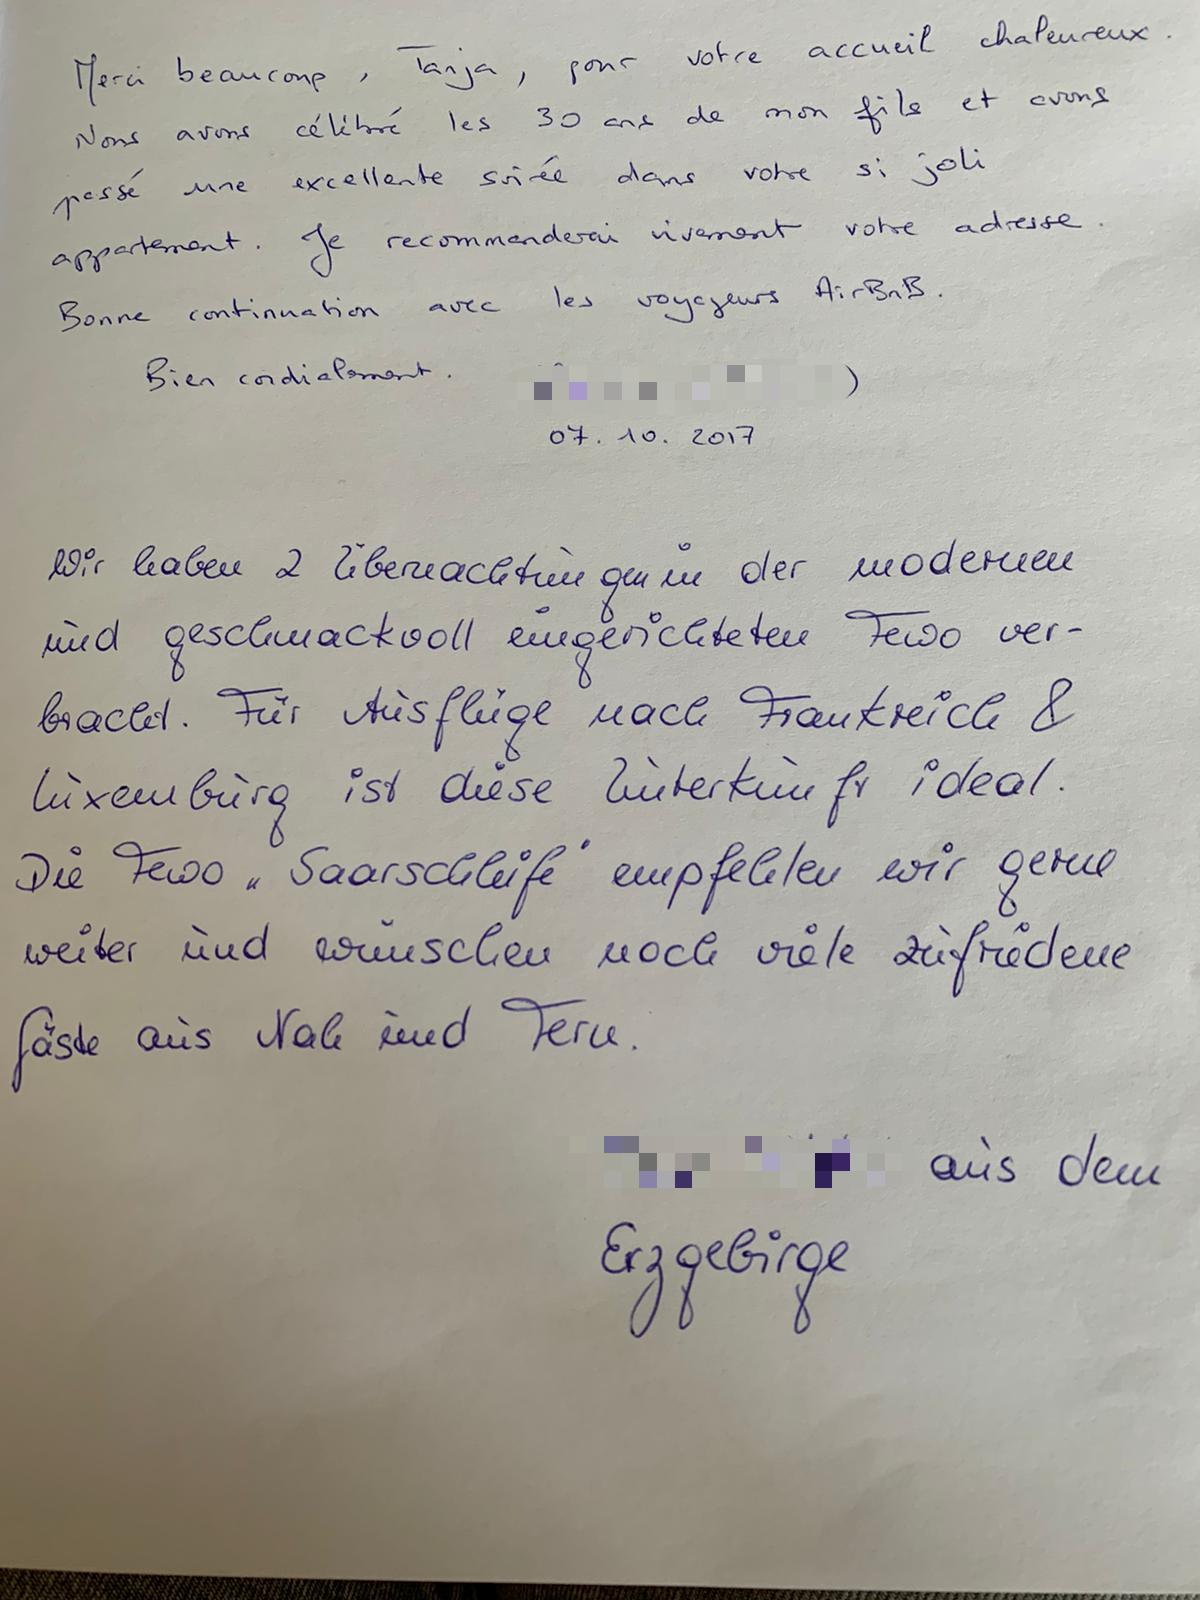 Merci beaucoup, Tanja, pour votre accueil chaleureux.
Nous avons célébré les 30 ans de mon fils et avons
passé une excellente soirée dans votre si joli
appartement. Je recommanderai vivement votre adresse.
Bonne continuation avec les voyageurs AirBnB.
Bien cordialement. )
07.10.2017
Wir haben 2 Übernachtungen in der modernen
und geschmackvoll eingerichteten Fewo ver-
bracht. Für Ausflüge nach Frankreich &
Luxemburg ist diese Unterkunft ideal.
Die Fewo "Saarschleife" empfehlen wir gerne
weiter und wünschen noch viele zufriedene
Gäste aus Nah und Fern.
aus dem
Erzgebirge